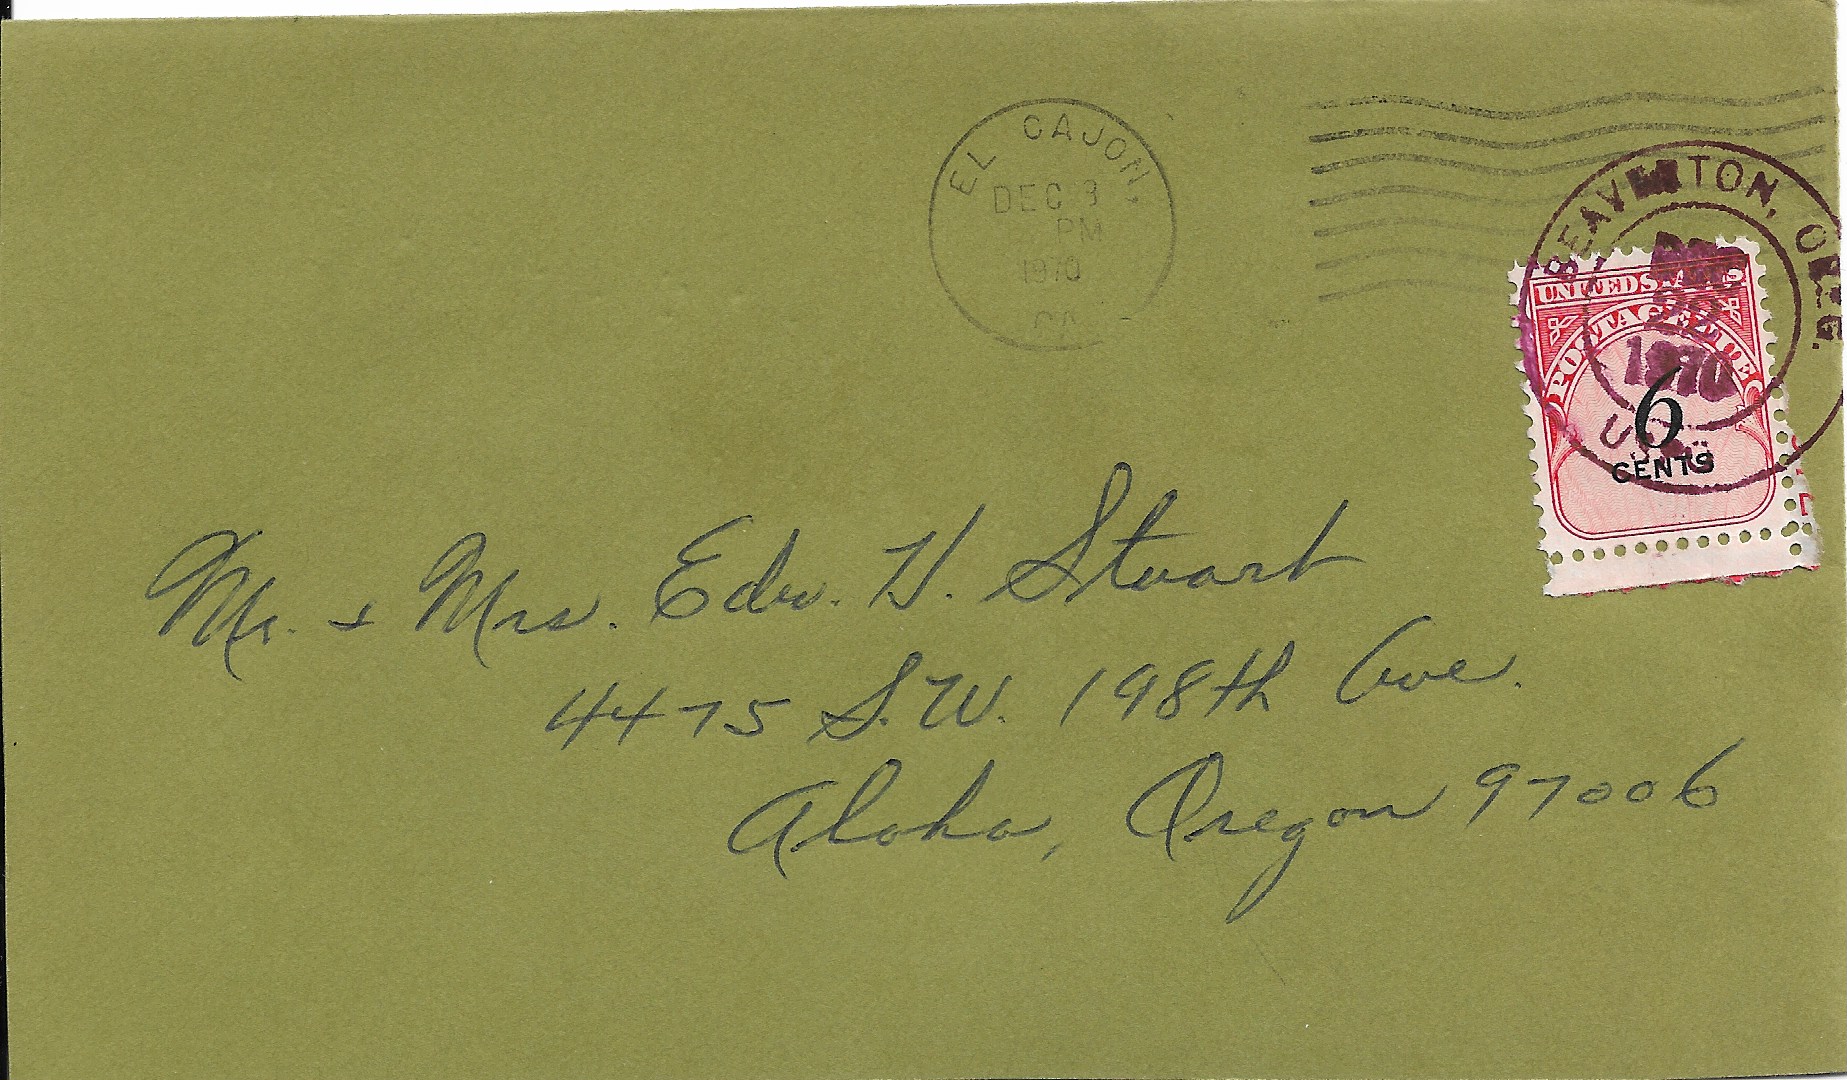 EL CAJON,
DEC 8
PM
1970
CA
BEAVERTON, OREG.
DEC
1970
USPO
UNITED STATES
POSTAGE DUE
6
CENTS
Mr. + Mrs. Edw. H. Stuart
4475 S.W. 198th Ave.
Aloha, Oregon 97006